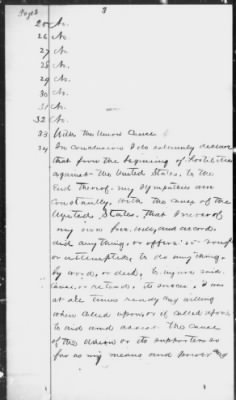 Page 3
25 No.
26 No.
27 No.
28 No.
29 No.
30 No.
31 No.
32 No.
33 With the Union Cause
34 In Conclusion I do solemnly declare
that from the beginning of hostilities
against the United States to the
End thereof my sympathies were
constantly with the cause of the
United States, that I never of
my own free will and accord
did any thing, or offer or
or attempted to do any thing
by word, or deed, to injure said
cause or retard its success, I was
at all times ready and willing
when called upon or if called upon
to aid and assist the cause
of the Union or its supporters so
far as my means and power